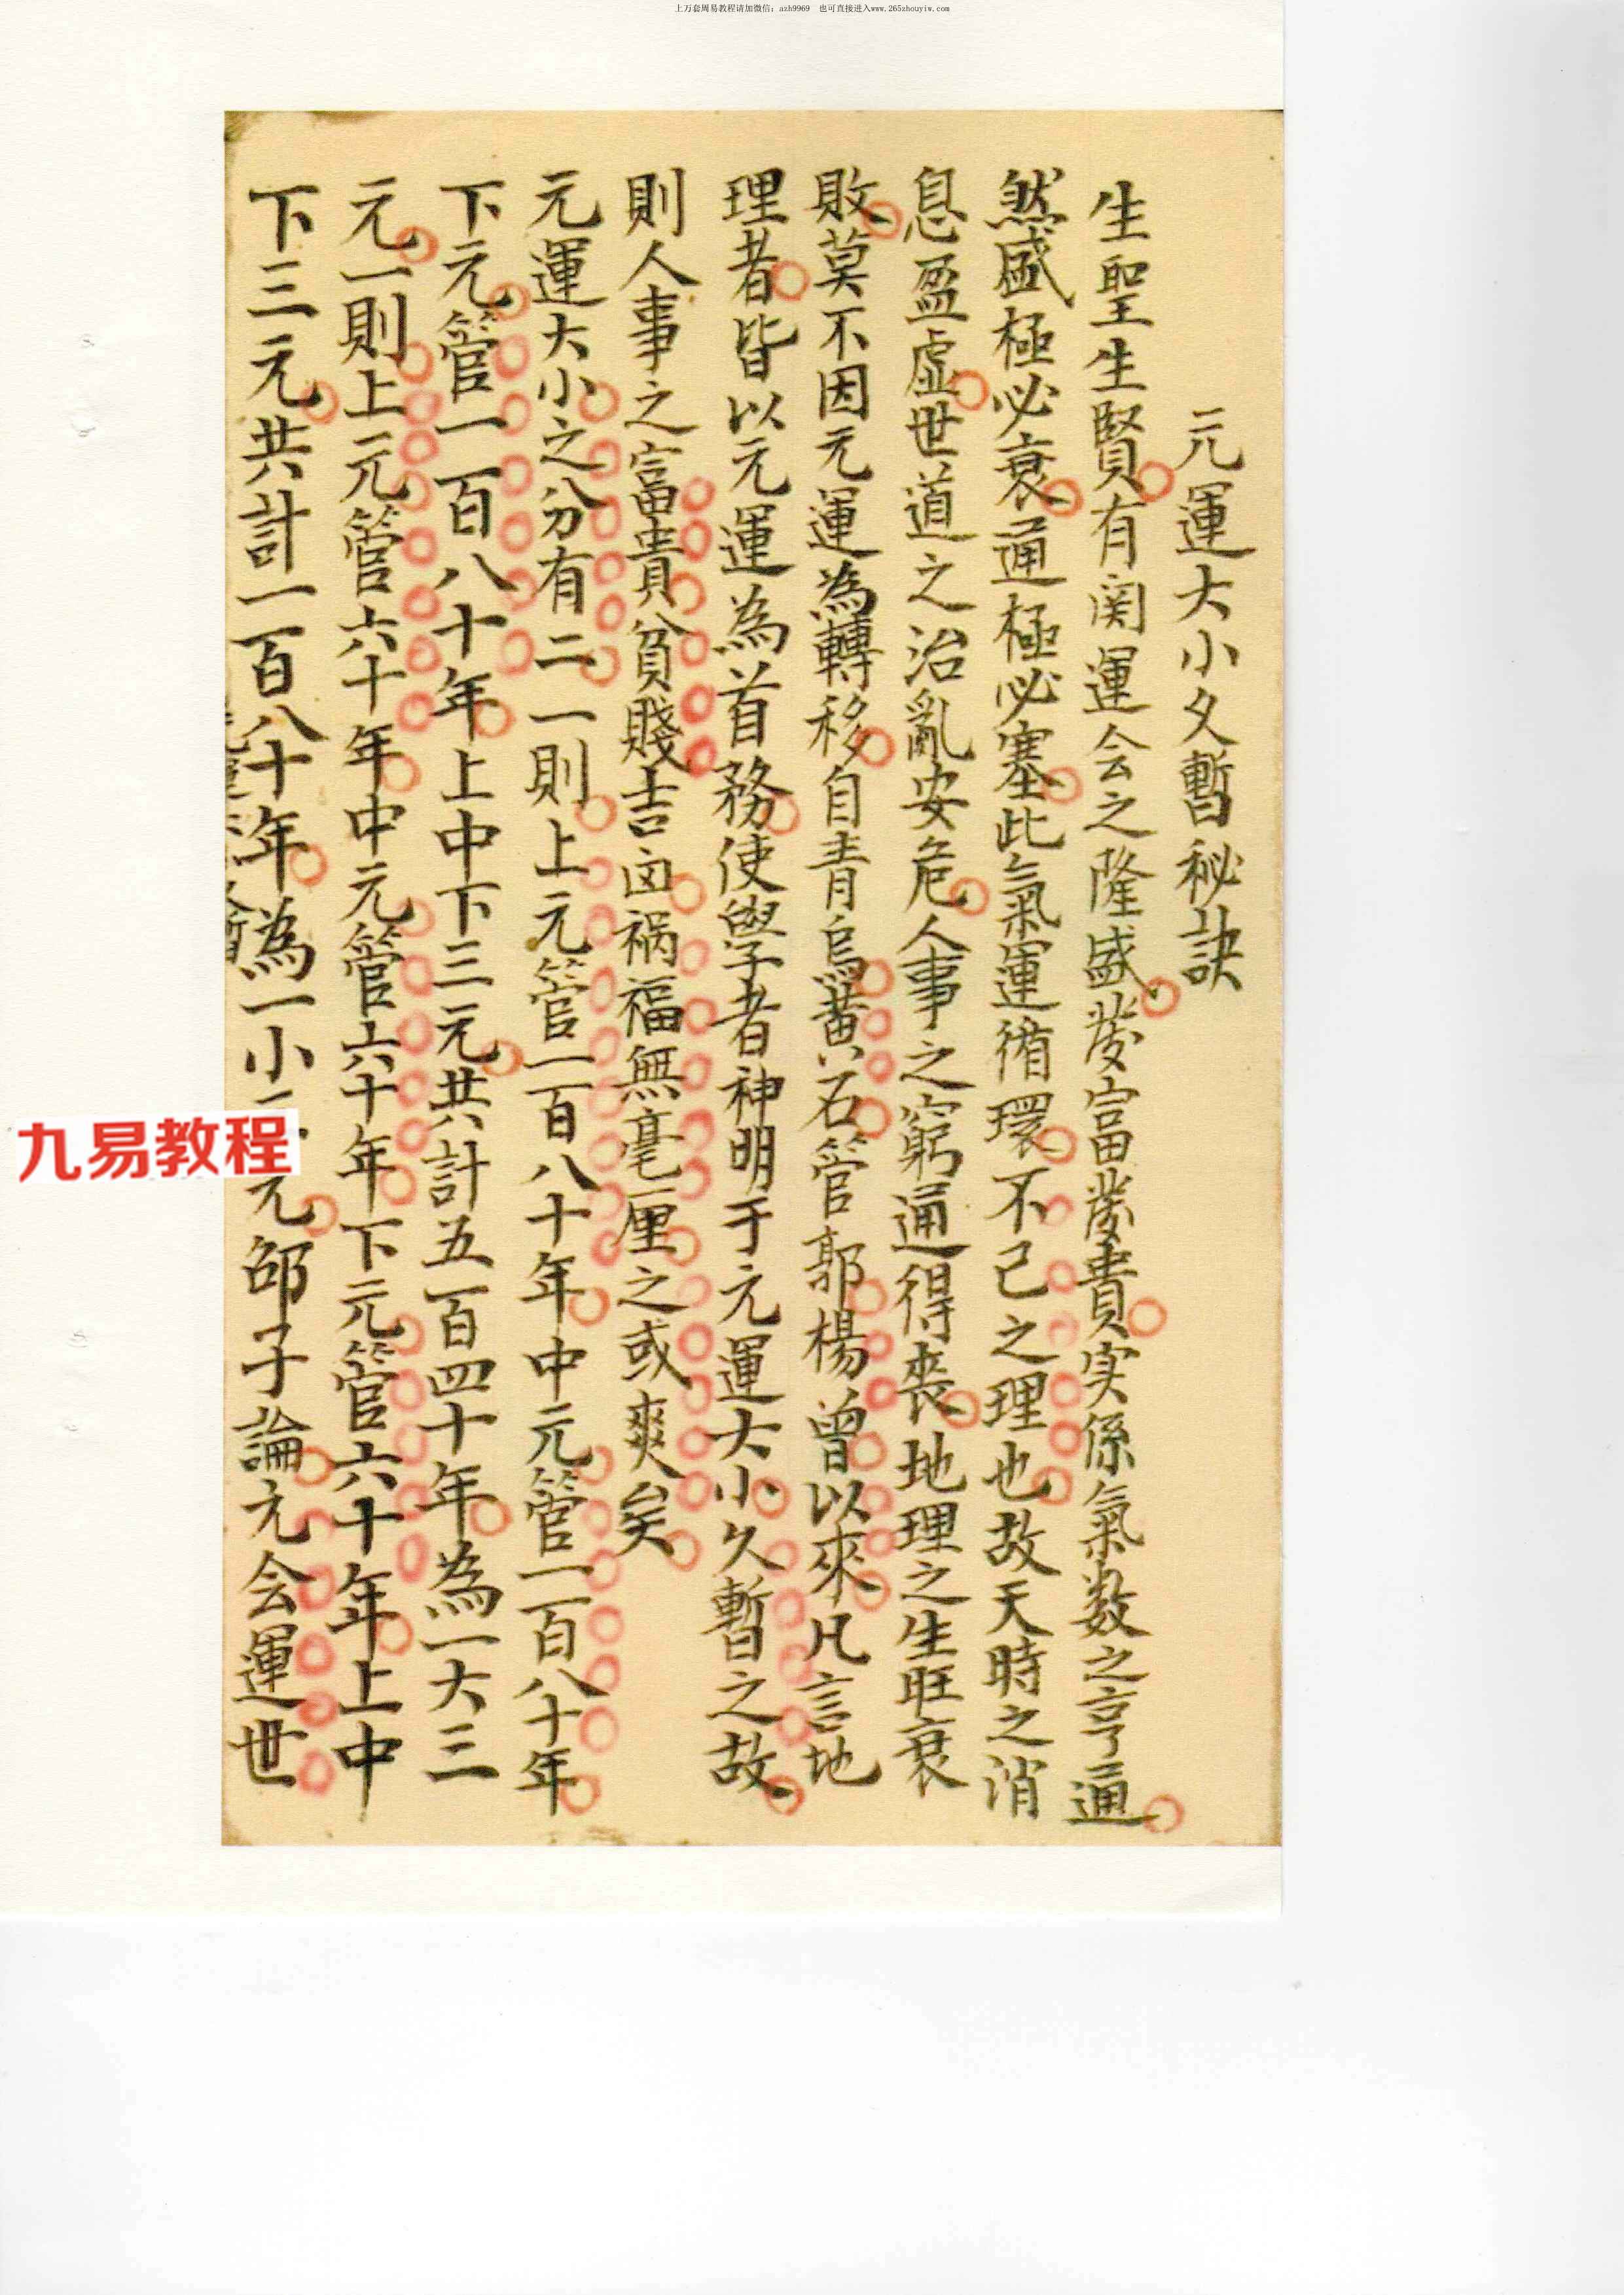 上万套周易教程请加微信：azh9969 也可直接进入www.265zhouyiw.com
元運大小久暫秘訣
生聖生賢有関運会之隆盛發富發貴実係氣数之亨通
然盛極必衰通極必塞此氣運循環不已之理也故天時之消
息盈虛世道之治亂安危人事之窮通得喪地理之生旺衰
敗莫不因元運為轉移自青烏黃石管郭楊曾以來凡言地
理者皆以元運為首務使學者神明于元運大小久暫之故
則人事之富貴貧賤吉凶禍福無毫厘之或爽矣
元運大小之分有二一則上元管一百八十年中元管一百八十年
下元管一百八十年上中下三元共計五百四十年為一大三
元一則上元管六十年中元管六十年下元管六十年上中
下三元共計一百八十年為一小三元邵子論元会運世
九易教程